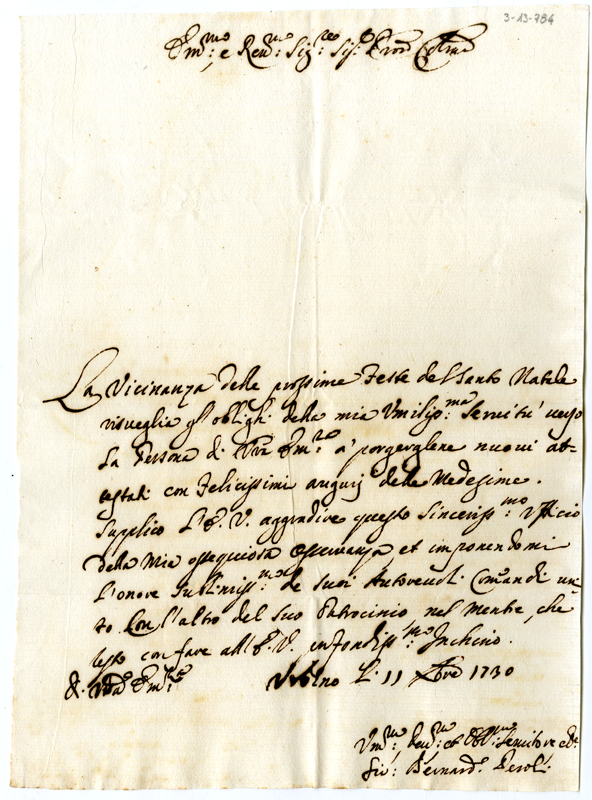 3-13-784
Em.mo e Rev.mo Sig.re Sig. Pron Colmo
La Vicinanza delle prossime Feste del Santo Natale
risveglia gl'oblighi della mia Umiliss:ma Servitù verso
la Persona di V'ra Em.za a' porgerglene nuovi at-
testati con Felicissimi augurij delle Medesime.
Supplico L'E. V. aggradire questo Sinceriss:mo Ufficio
della Mia ossequiosa osservanza et imponendomi
L'onore Sublimiss:mo de suoi Autorevoli Comandi un-
to Con l'altro del Suo Patrocinio nel Mentre, che
resto con fare all'E. V. profondiss:mo Inchino.
D. Vra Em.za Li 11 Xbre 1730
Um.mo Rev.mo et Obl.mo Servitore
Gio: Bernard.